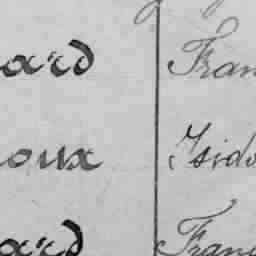 ard Fran
oux Isido
ard Franç